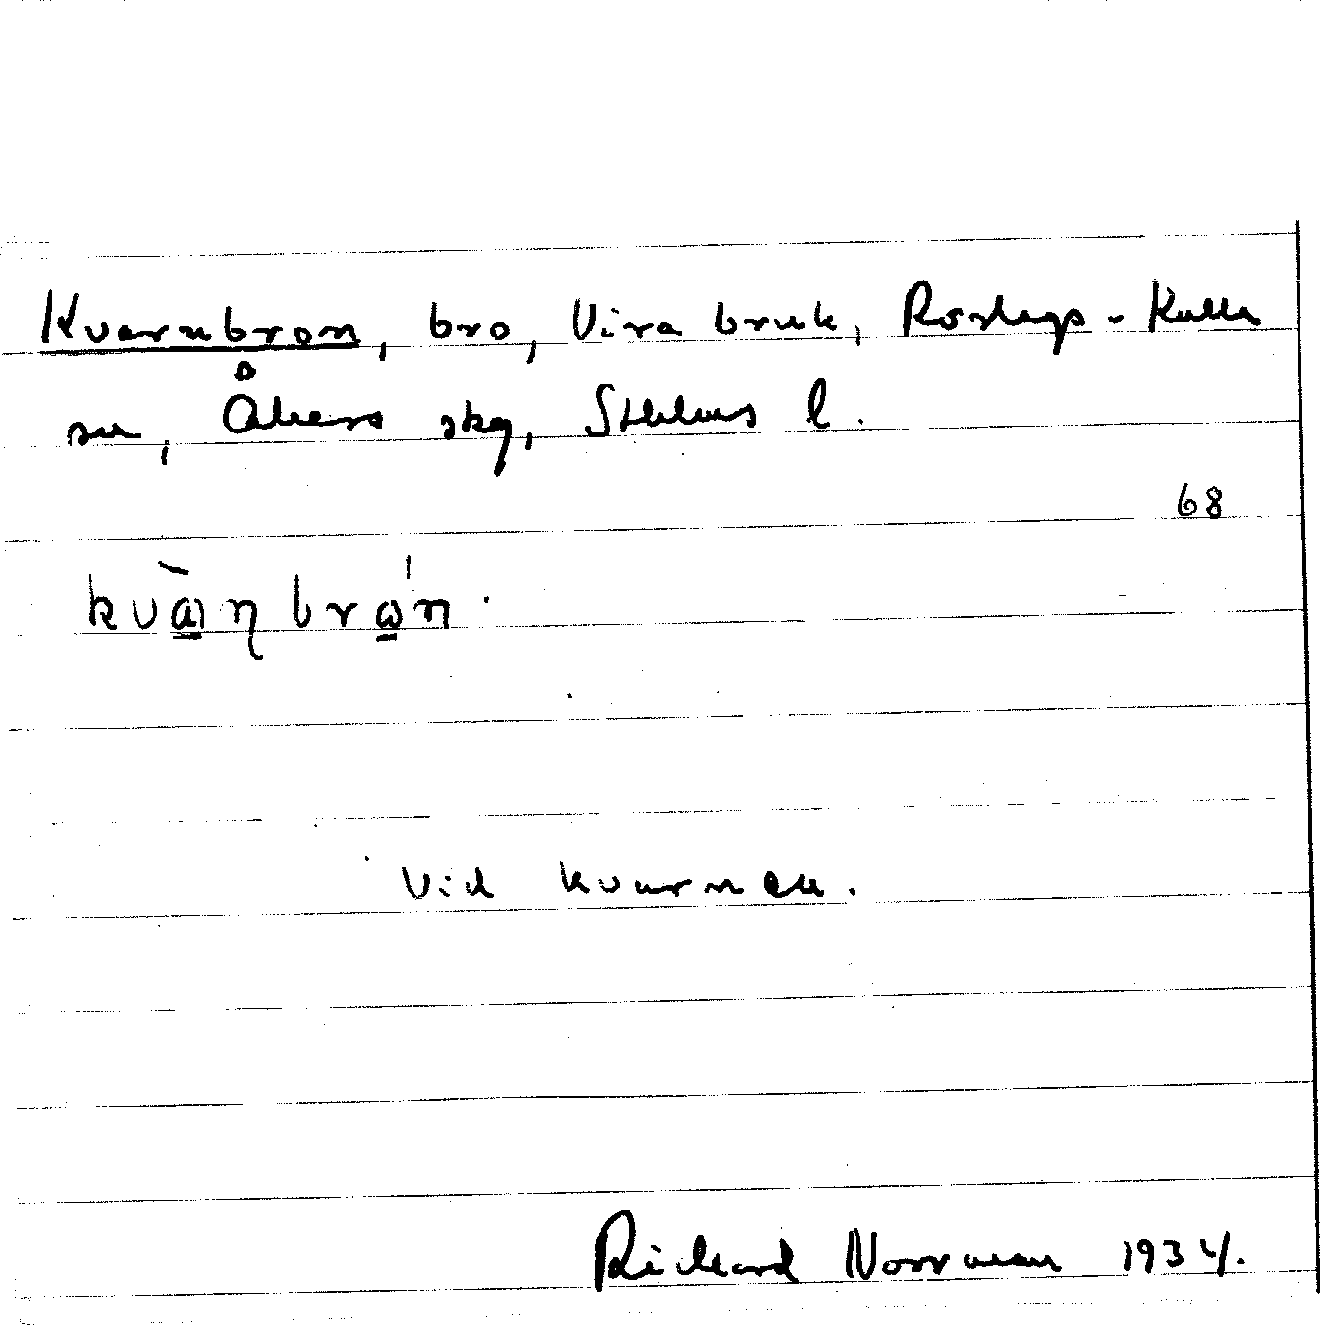 Kvarnbron, bro, Vira bruk, Roslags-Kulla
sn, Åkers skg, Sthlms l.
68
kvàɳbrω'n.
Vid kvarnen.
Richard Norrman 1934.